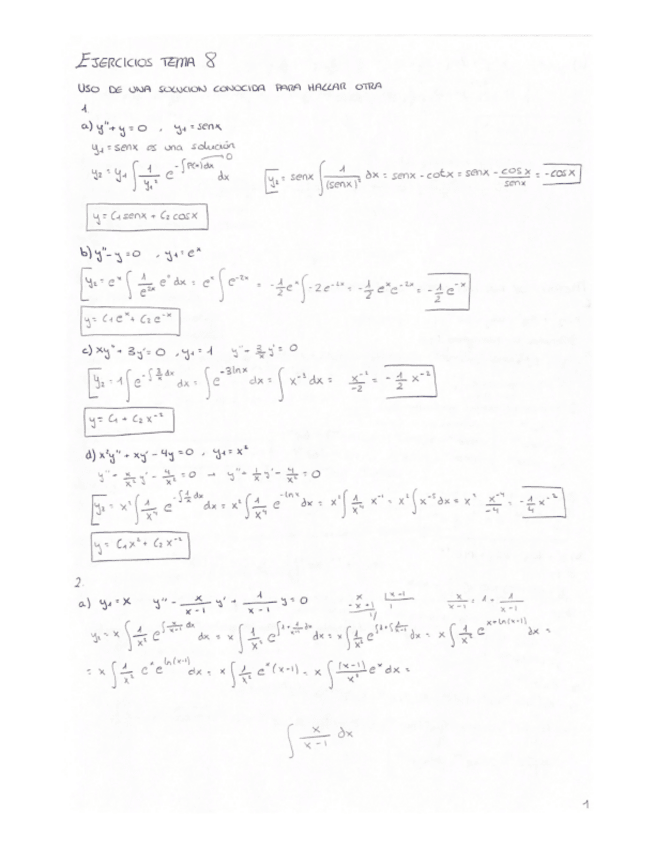 EJERCICIOS TEMA 8
USO DE UNA SOLUCION CONOCIDA PARA HALLAR OTRA
1.
a) y'' + y = 0 , y₁ = senx
y₁ = senx es una solución
y₂ = y₁ ∫ 1/y₁² e^(-∫P(x)dx) dx → 0
y₂ = senx ∫ 1/(senx)² dx = senx - cotx = senx - cosx/senx = -cosx
y = C₁ senx + C₂ cosx
b) y'' - y = 0 , y₁ = eˣ
y₂ = eˣ ∫ 1/e²ˣ e⁰ dx = eˣ ∫ e⁻²ˣ = -1/2 eˣ ∫ -2e⁻²ˣ = -1/2 eˣ e⁻²ˣ = -1/2 e⁻ˣ
y = C₁eˣ + C₂e⁻ˣ
c) xy'' + 3y' = 0 , y₁ = 1 y'' - 3/x y' = 0
y₂ = 1 ∫ e^(-∫3/x dx) dx = ∫ e^(-3lnx) dx = ∫ x⁻³ dx = x⁻²/-2 = -1/2 x⁻²
y = C₁ + C₂ x⁻²
d) x²y'' + xy' - 4y = 0 , y₁ = x²
y'' - x/x² y' - 4/x² = 0 → y'' + 1/x y' - 4/x² = 0
y₂ = x² ∫ 1/x⁴ e^(-∫1/x dx) dx = x² ∫ 1/x⁴ e^(-lnx) dx = x² ∫ 1/x⁴ x⁻¹ = x² ∫ x⁻⁵ dx = x² x⁻⁴/-4 = -1/4 x⁻²
y = C₁x² + C₂x⁻²
2.
a) y₁ = x y'' - x/(x-1) y' + 1/(x-1) y = 0
x/(x-1) = 1 + 1/(x-1)
y₂ = x ∫ 1/x² e^(∫x/(x-1) dx) dx = x ∫ 1/x² e^(∫1+1/(x-1) dx) dx = x ∫ 1/x² e^(∫1+∫1/(x-1)) dx = x ∫ 1/x² e^(x+ln(x-1)) dx =
= x ∫ 1/x² eˣ e^(ln(x-1)) dx = x ∫ 1/x² eˣ (x-1) = x ∫ (x-1)/x² eˣ dx =
∫ x/(x-1) dx
1